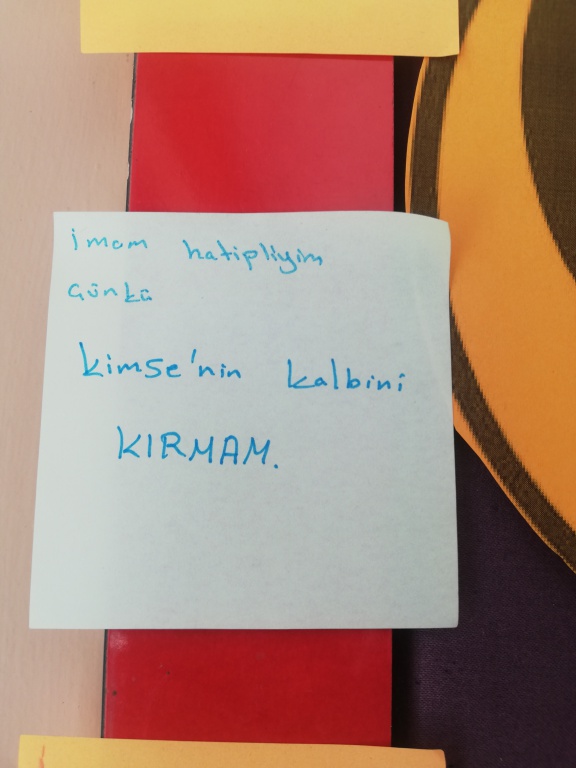 imam hatipliyim
Günkü
kimse'nin kalbini
KIRMAM.